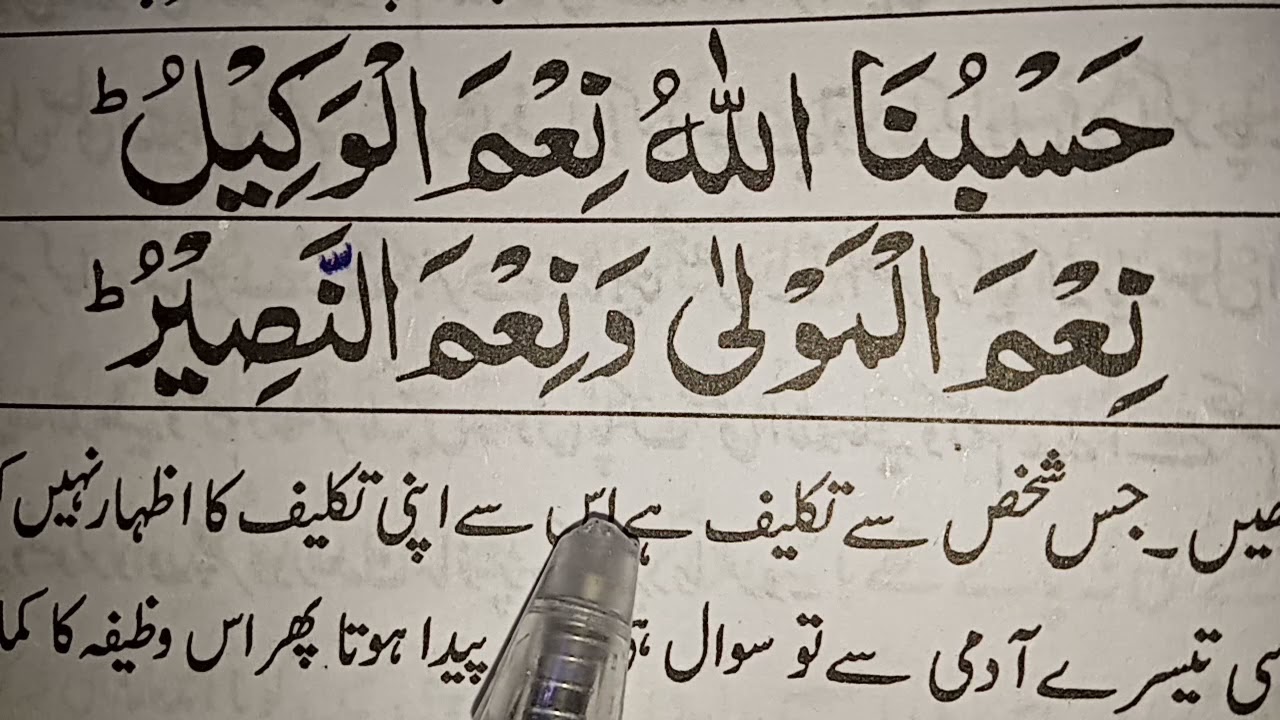 حَسْبُنَا اللّٰهُ نِعْمَ الْوَكِيْلُ ط
نِعْمَ الْمَوْلٰى وَنِعْمَ النَّصِيْرُ ط
۔ جس شخص سے تکلیف ہے اس سے اپنی تکلیف کا اظہار نہیں
تیسرے آدمی سے تو سوال پیدا ہوتا پھر اس وظیفہ کا